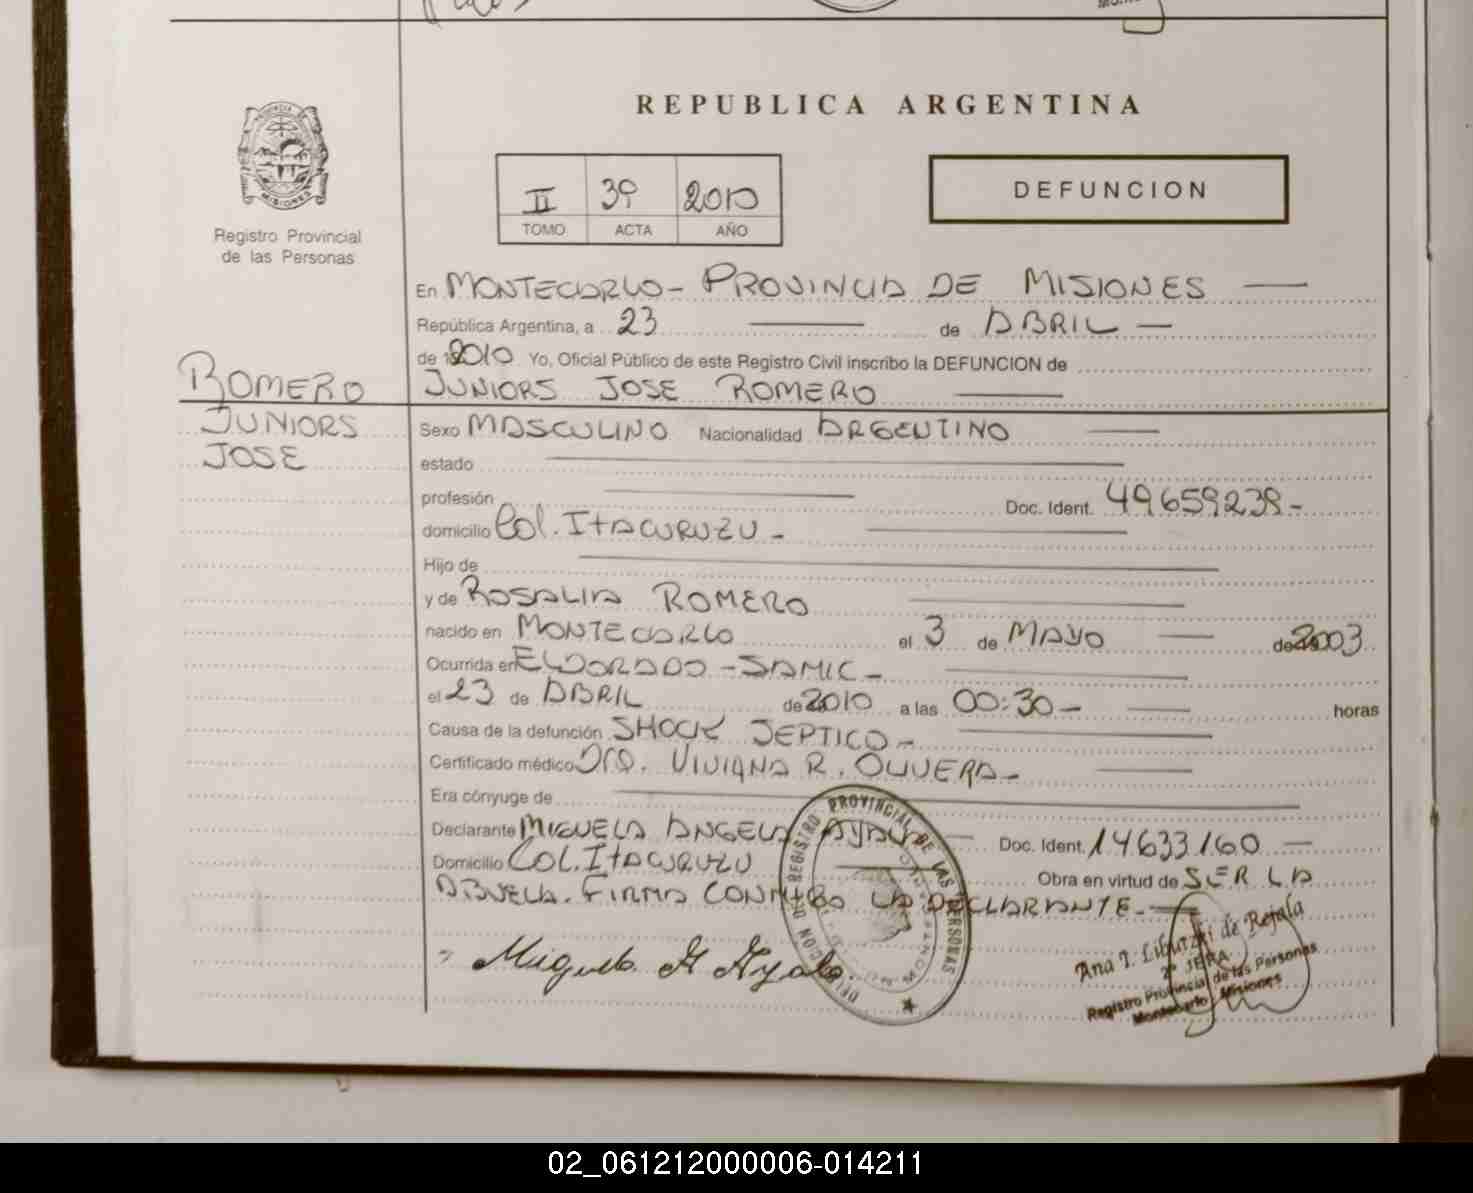 REPUBLICA ARGENTINA
DEFUNCION
II 39 2010
TOMO ACTA AÑO
Registro Provincial
de las Personas
En MONTECARLO - PROVINCIA DE MISIONES
República Argentina, a 23 de ABRIL
de 2010 Yo, Oficial Público de este Registro Civil inscribo la DEFUNCION de
ROMERO JUNIORS JOSE ROMERO
JUNIORS Sexo MASCULINO Nacionalidad ARGENTINO
JOSE estado
profesión Doc. Ident. 49659239-
domicilio Col. ITACURUZU -
Hijo de
y de ROSALIA ROMERO
nacido en MONTECARLO el 3 de MAYO de 2003
Ocurrida en ELDORADO - SAMIC -
el 23 de ABRIL de 2010 a las 00:30 - horas
Causa de la defunción SHOCK SEPTICO -
Certificado médico DRA. VIVIANA R. OLIVERA -
Era cónyuge de
Declarante MIGUELA ANGELA AYALA Doc. Ident. 14633160
Domicilio COL. ITACURUZU Obra en virtud de SER LA
ABUELA. FIRMA CONMIGO LA DECLARANTE.-
Miguela A Ayala
DELEGACION DEL REGISTRO PROVINCIAL DE LAS PERSONAS
Ana T. Libutzki de Rejala
2ª JEFA
Registro Provincial de las Personas
Montecarlo - Misiones
02_061212000006-014211